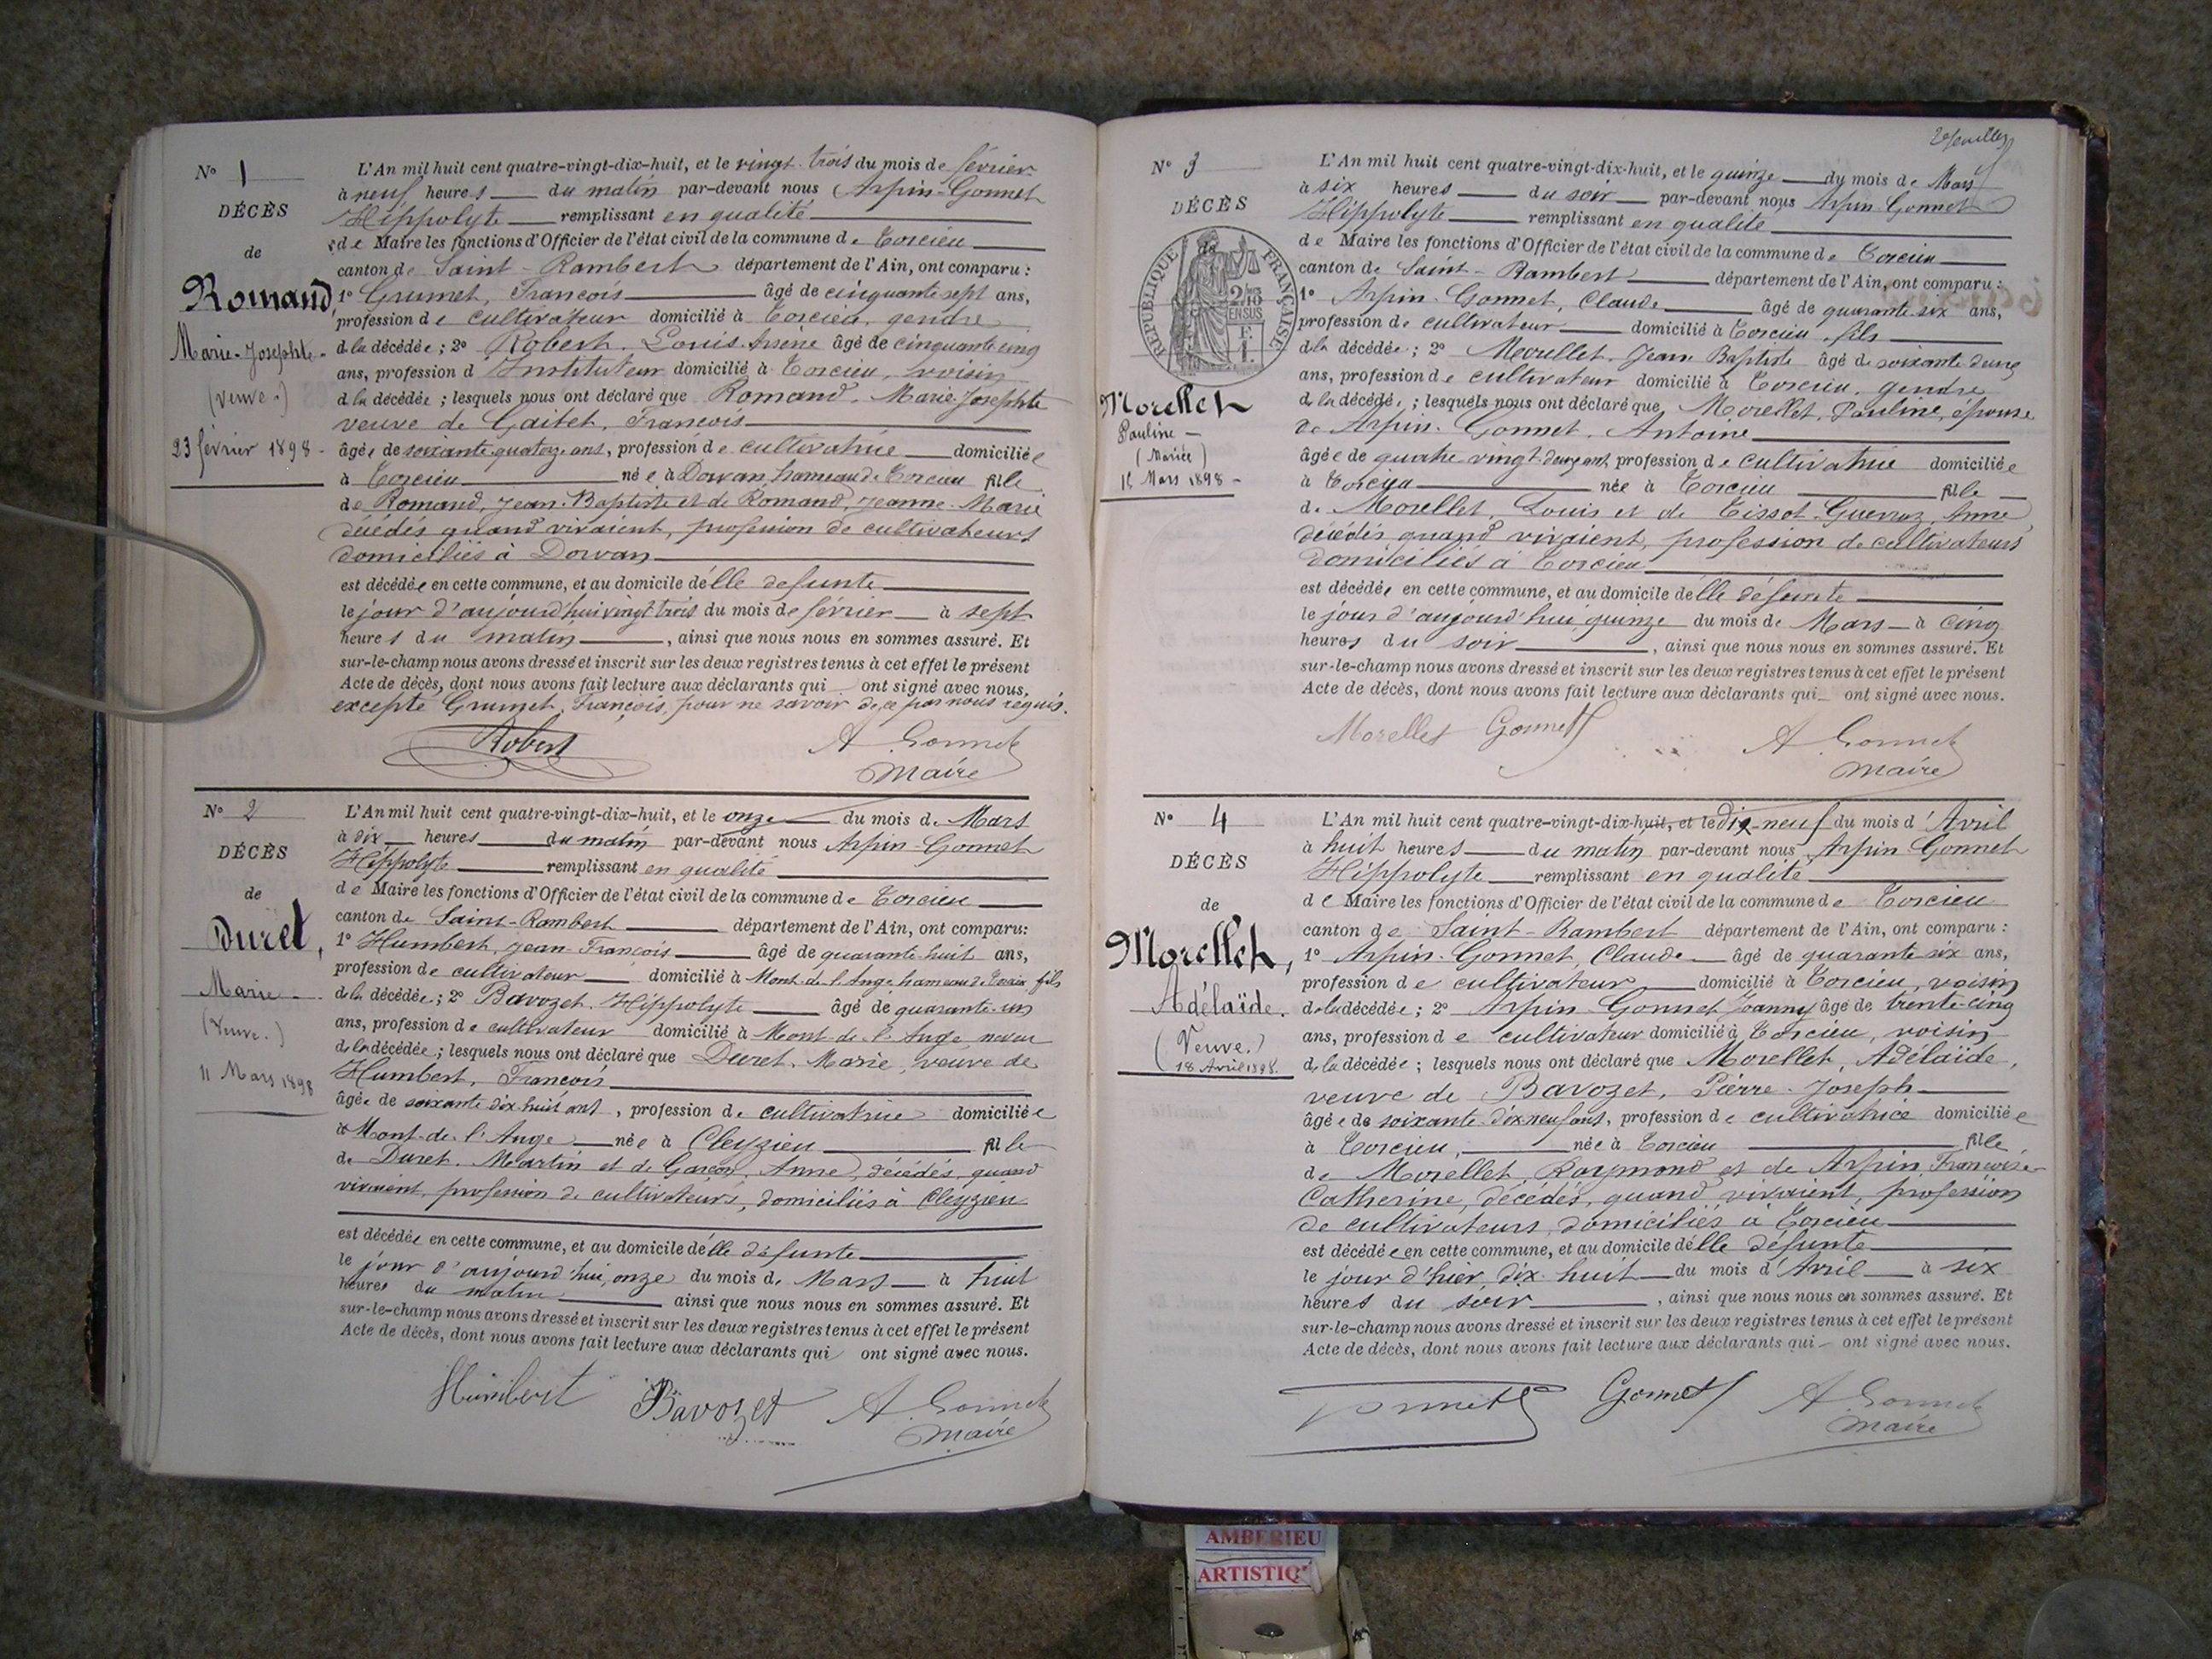 N° 1
DÉCÈS
de
Romand,
Marie-Josephte
(Veuve.)
23 février 1898
L'An mil huit cent quatre-vingt-dix-huit, et le vingt trois du mois de février
à neuf heures du matin par-devant nous Arpin-Gonnet
Hippolyte remplissant en qualité
de Maire les fonctions d'Officier de l'état civil de la commune de Torcieu
canton de Saint-Rambert département de l'Ain, ont comparu :
1° Grumet, François âgé de cinquante sept ans,
profession de cultivateur domicilié à Torcieu, gendre
de la décédée ; 2° Robert, Louis Arsène âgé de cinquante cinq
ans, profession d'Instituteur domicilié à Torcieu, voisin
de la décédée ; lesquels nous ont déclaré que Romand, Marie Josephte
veuve de Gaitet, François
âgée de soixante quatorze ans, profession de cultivatrice domiciliée
à Torcieu née à Dorvan hameau de Torcieu fille
de Romand, Jean-Baptiste et de Romand, Jeanne-Marie
décédés quand vivaient, profession de cultivateurs
domiciliés à Dorvan
est décédée en cette commune, et au domicile d'elle defunte
le jour d'aujourd'hui vingt trois du mois de février à sept
heures du matin, ainsi que nous nous en sommes assuré. Et
sur-le-champ nous avons dressé et inscrit sur les deux registres tenus à cet effet le présent
Acte de décès, dont nous avons fait lecture aux déclarants qui ont signé avec nous,
excepté Grumet, François, pour ne savoir de ce par nous requis.
Robert A. Gonnet
Maire
N° 2
DÉCÈS
de
Duret,
Marie
(Veuve.)
11 Mars 1898
L'An mil huit cent quatre-vingt-dix-huit, et le onze du mois de Mars
à dix heures du matin par-devant nous Arpin-Gonnet
Hippolyte remplissant en qualité
de Maire les fonctions d'Officier de l'état civil de la commune de Torcieu
canton de Saint-Rambert département de l'Ain, ont comparu :
1° Humbert, Jean-François âgé de quarante huit ans,
profession de cultivateur domicilié à Mont-de-l'Ange hameau de Torcieu fils
de la décédée ; 2° Bavozet, Hippolyte âgé de quarante-un
ans, profession de cultivateur domicilié à Mont-de-l'Ange neveu
de la décédée ; lesquels nous ont déclaré que Duret, Marie, veuve de
Humbert, François
âgée de soixante dix huit ans, profession de cultivatrice domiciliée
à Mont-de-l'Ange née à Cleyzieu fille
de Duret, Martin et de Garçon, Anne, décédés, quand
vivaient, profession de cultivateurs, domiciliés à Cleyzieu
est décédée en cette commune, et au domicile d'elle défunte
le jour d'aujourd'hui, onze du mois de Mars à huit
heures du matin ainsi que nous nous en sommes assuré. Et
sur-le-champ nous avons dressé et inscrit sur les deux registres tenus à cet effet le présent
Acte de décès, dont nous avons fait lecture aux déclarants qui ont signé avec nous.
Humbert Bavozet A. Gonnet
Maire
2e feuillet
N° 3
DÉCÈS
de
RÉPUBLIQUE FRANÇAISE
2/10 EN SUS
Morellet
Pauline
(Mariée)
15 Mars 1898
L'An mil huit cent quatre-vingt-dix-huit, et le quinze du mois de Mars
à six heures du soir par-devant nous Arpin-Gonnet
Hippolyte remplissant en qualité
de Maire les fonctions d'Officier de l'état civil de la commune de Torcieu
canton de Saint-Rambert département de l'Ain, ont comparu :
1° Arpin-Gonnet, Claude âgé de quarante-six ans,
profession de cultivateur domicilié à Torcieu, fils
de la décédée ; 2° Morellet, Jean Baptiste âgé de soixante deux
ans, profession de cultivateur domicilié à Torcieu, gendre
de la décédée ; lesquels nous ont déclaré que Morellet, Pauline, épouse
de Arpin-Gonnet, Antoine
âgée de quatre vingt-deux ans, profession de cultivatrice domiciliée
à Torcieu née à Torcieu fille
de Morellet, Louis et de Tissot-Guerraz, Anne
décédés quand vivaient, profession de cultivateurs
domiciliés à Torcieu
est décédée en cette commune, et au domicile d'elle défunte
le jour d'aujourd'hui quinze du mois de Mars à cinq
heures du soir, ainsi que nous nous en sommes assuré. Et
sur-le-champ nous avons dressé et inscrit sur les deux registres tenus à cet effet le présent
Acte de décès, dont nous avons fait lecture aux déclarants qui ont signé avec nous.
Morellet Gonnet A. Gonnet
Maire
N° 4
DÉCÈS
de
Morellet,
Adélaïde.
(Veuve.)
18 Avril 1898.
L'An mil huit cent quatre-vingt-dix-huit, et le dix-neuf du mois d'Avril
à huit heures du matin par-devant nous Arpin-Gonnet
Hippolyte remplissant en qualité
de Maire les fonctions d'Officier de l'état civil de la commune de Torcieu
canton de Saint-Rambert département de l'Ain, ont comparu :
1° Arpin-Gonnet, Claude âgé de quarante six ans,
profession de cultivateur domicilié à Torcieu, voisin
de la décédée ; 2° Arpin-Gonnet Joanny âgé de trente-cinq
ans, profession de cultivateur domicilié à Torcieu, voisin
de la décédée ; lesquels nous ont déclaré que Morellet, Adélaïde,
veuve de Bavozet, Pierre-Joseph
âgée de soixante-dix neuf ans, profession de cultivatrice domiciliée
à Torcieu, née à Torcieu fille
de Morellet, Raymond et de Arpin, Françoise
Catherine, décédés, quand vivaient, profession
de cultivateurs, domiciliés à Torcieu
est décédée en cette commune, et au domicile d'elle défunte
le jour d'hier, dix-huit du mois d'Avril à six
heures du soir, ainsi que nous nous en sommes assuré. Et
sur-le-champ nous avons dressé et inscrit sur les deux registres tenus à cet effet le présent
Acte de décès, dont nous avons fait lecture aux déclarants qui ont signé avec nous.
Gonnet Gonnet A. Gonnet
Maire
AMBERIEU
ARTISTIQ